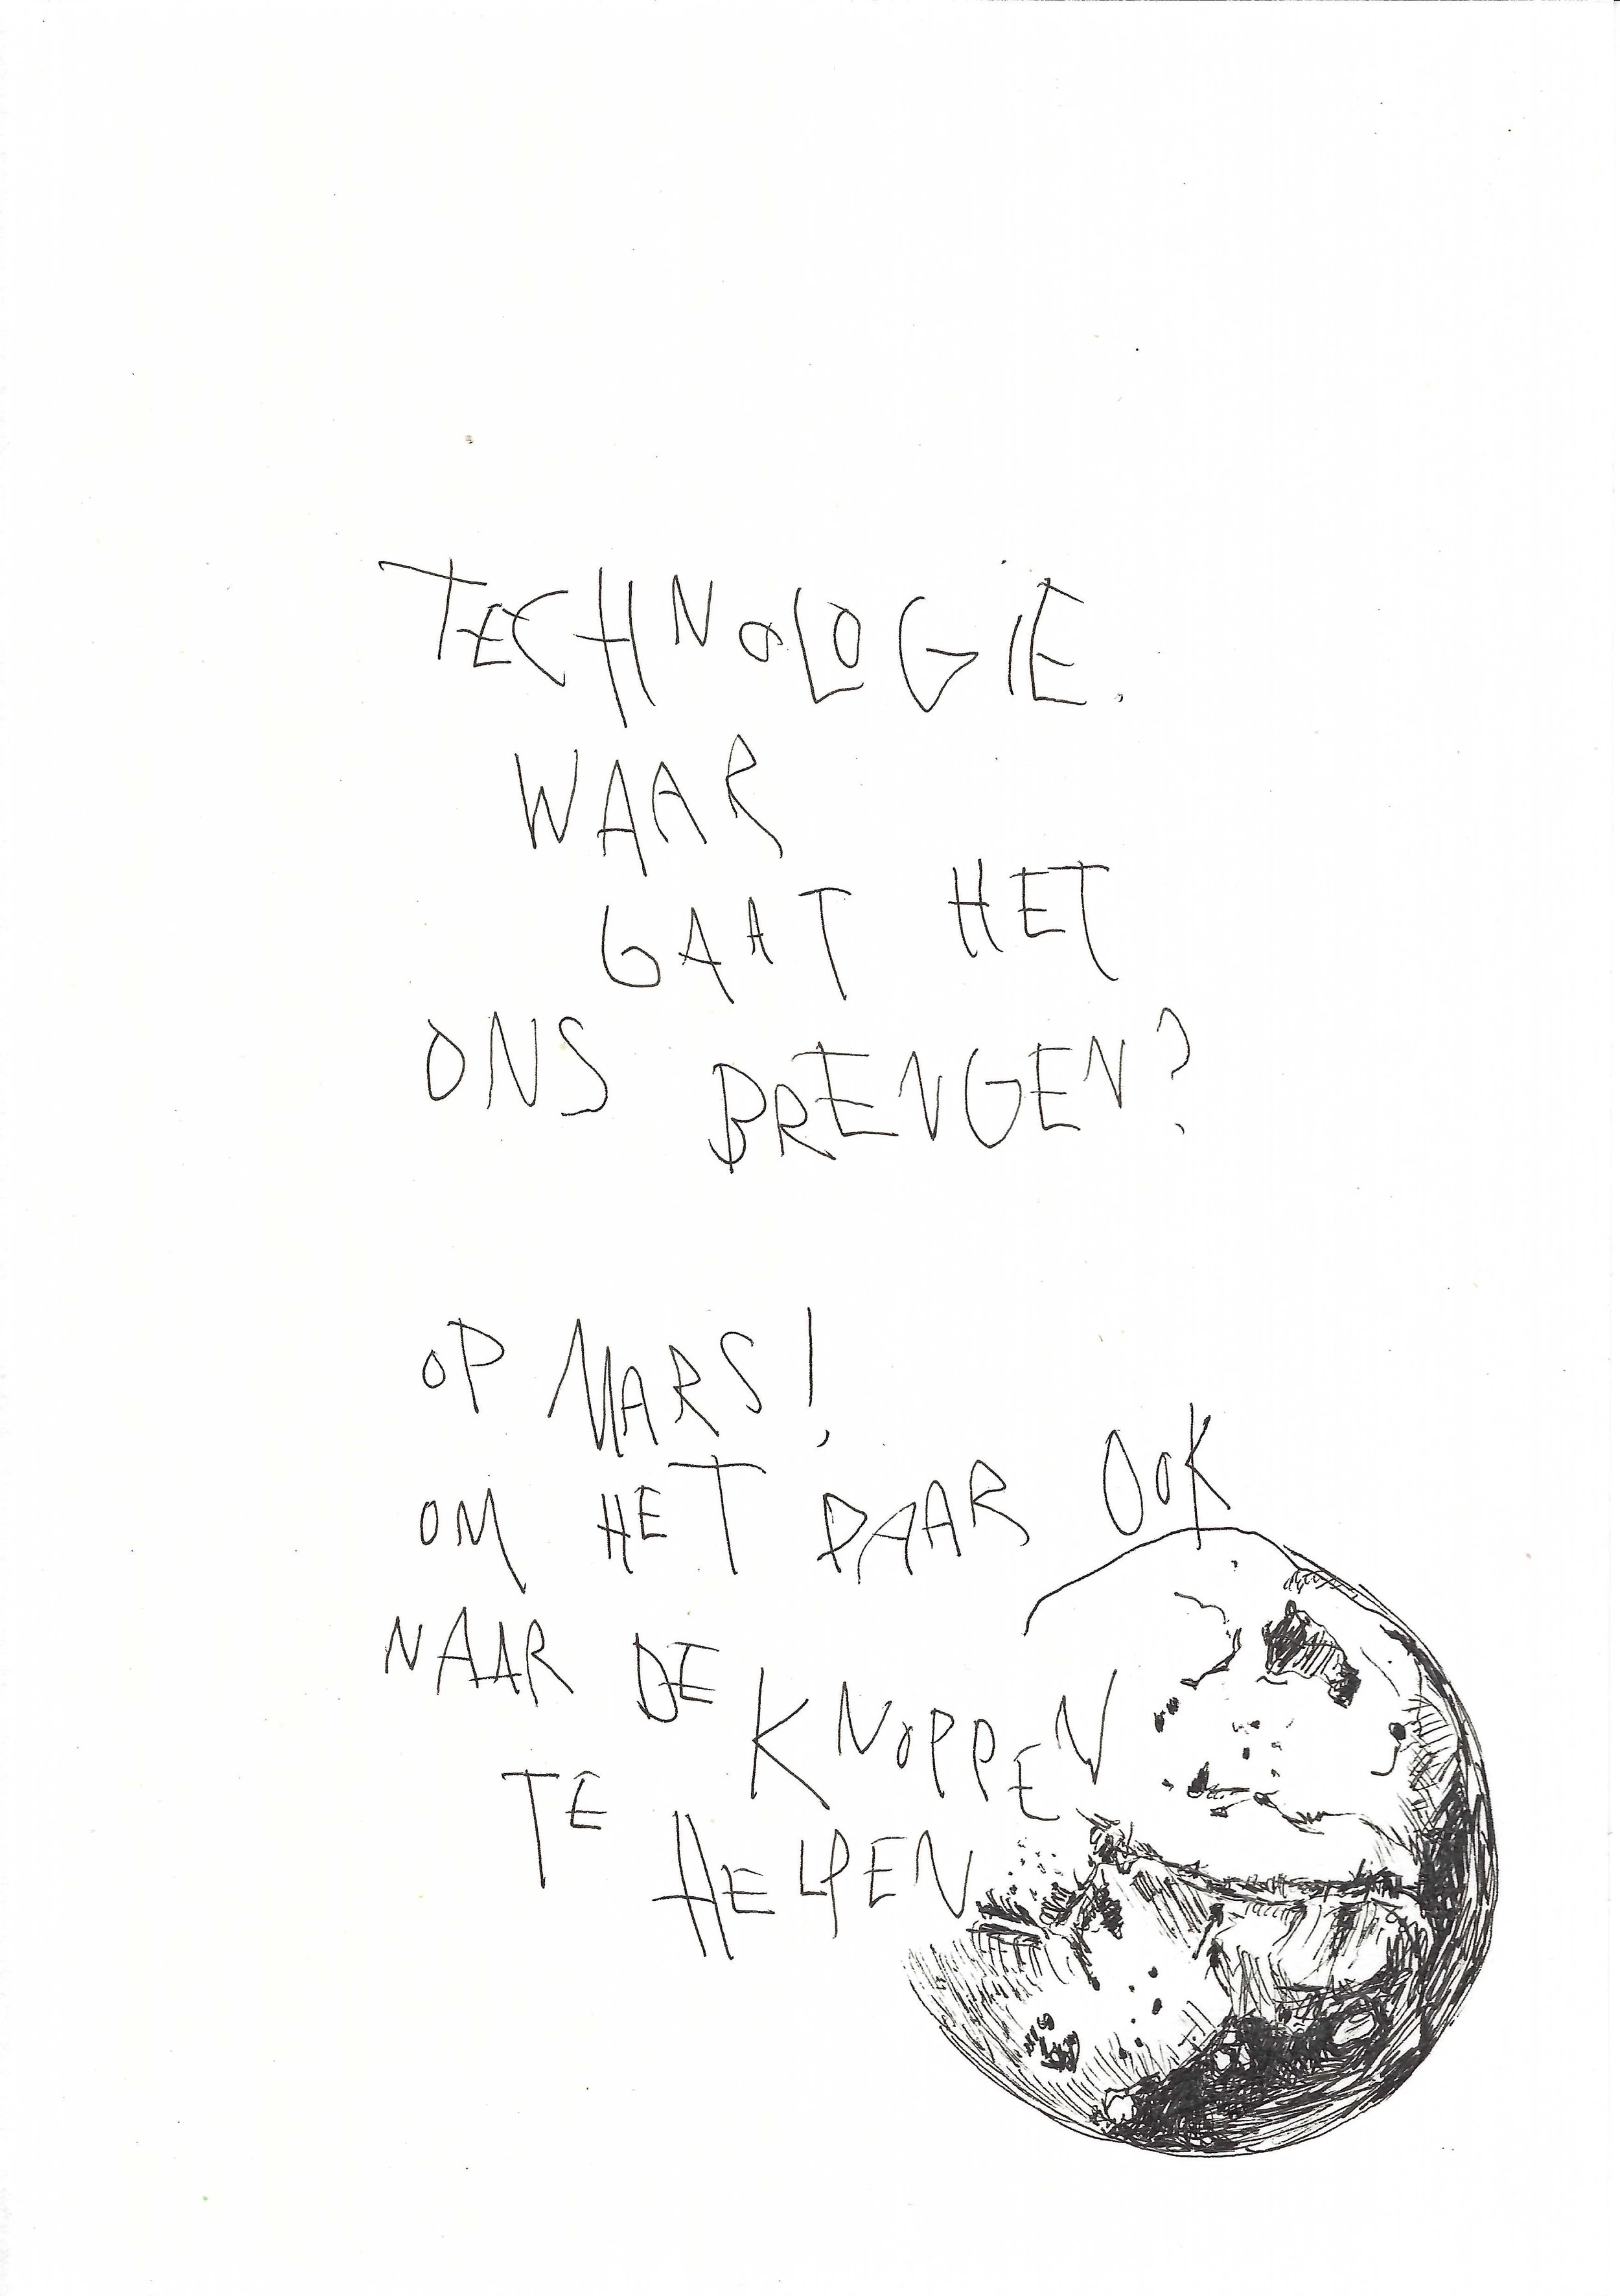 TECHNOLOGIE.
WAAR
GAAT HET
ONS BRENGEN?
OP MARS!
OM HET DAAR OOK
NAAR DE KNOPPEN
TE HELPEN